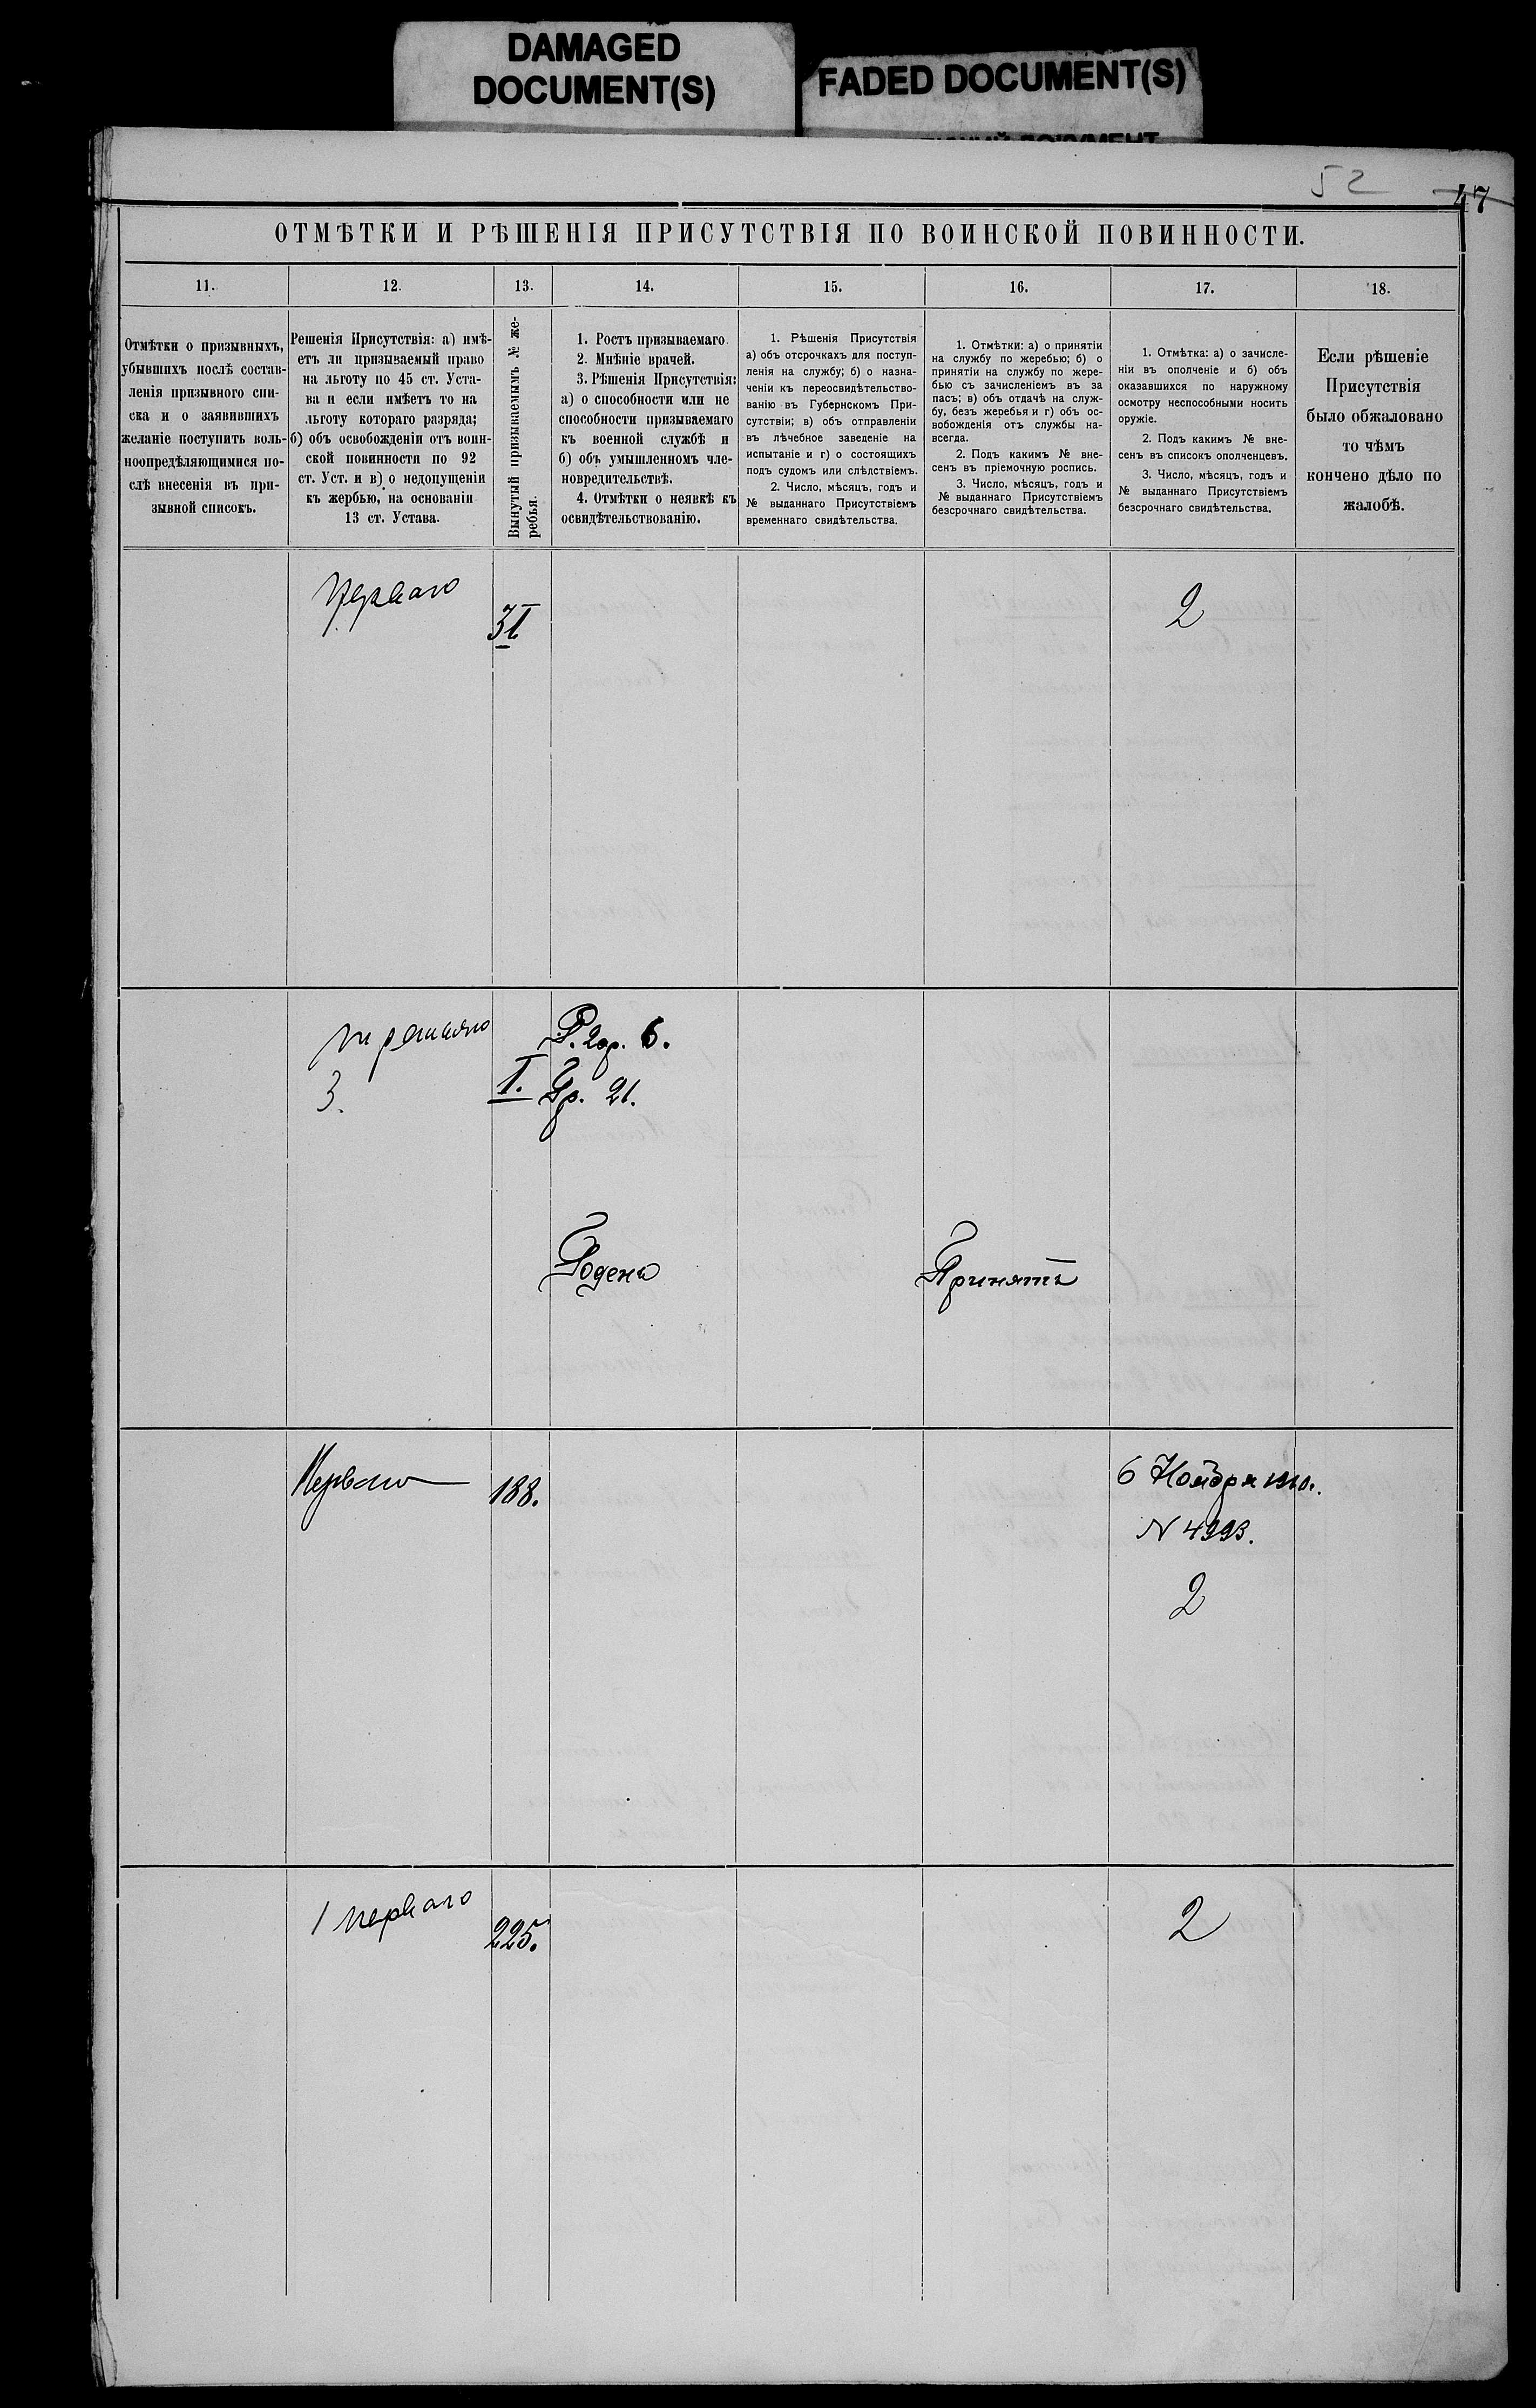 DAMAGED
DOCUMENT(S)
FADED DOCUMENT(S)
52
47
ОТМѢТКИ И РѢШЕНІЯ ПРИСУТСТВІЯ ПО ВОИНСКОЙ ПОВИННОСТИ.
11.
Отмѣтки о призывныхъ,
убывшихъ послѣ состав-
ленія призывного спи-
ска и о заявившихъ
желаніе поступить воль-
ноопредѣляющимися по-
слѣ внесенія въ при-
зывной списокъ.
12.
Решенія Присутствія: а) имѣ-
етъ ли призываемый право
на льготу по 45 ст. Уста-
ва и если имѣетъ то на
льготу котораго разряда;
б) объ освобожденіи отъ воин-
ской повинности по 92
ст. Уст. и в) о недопущеніи
къ жербью, на основаніи
13 ст. Устава.
13.
Вынутый призываемымъ № же-
ребья.
14.
1. Ростъ призываемаго
2. Мнѣніе врачей.
3. Рѣшенія Присутствія:
а) о способности или не
способности призываемаго
къ военной службѣ и
б) объ умышленномъ чле-
новредительствѣ.
4. Отмѣтки о неявкѣ къ
освидѣтельствованію.
15.
1. Рѣшенія Присутствія
а) объ отсрочкахъ для поступ-
ленія на службу; б) о назна-
ченіи къ переосвидѣтельство-
ванію въ Губернскомъ При-
сутствіи; в) объ отправленіи
въ лѣчебное заведеніе на
испытаніе и г) о состоящихъ
подъ судомъ или слѣдствіемъ.
2. Число, мѣсяцъ, годъ и
№ выданнаго Присутствіемъ
временнаго свидѣтельства.
16.
1. Отмѣтки: а) о принятіи
на службу по жеребью; б) о
принятіи на службу по жере-
бью съ зачисленіемъ въ за
пасъ; в) объ отдачѣ на служ-
бу, безъ жеребья и г) объ ос-
вобожденія отъ службы на-
всегда.
2. Подъ какимъ № вне-
сенъ въ пріемочную роспись.
3. Число, мѣсяцъ, годъ и
№ выданнаго Присутствіемъ
безсрочнаго свидѣтельства.
17.
1. Отмѣтка: а) о зачисле-
ніи въ ополченіе и б) объ
оказавшихся по наружному
осмотру неспособными носить
оружіе.
2. Подъ какимъ № вне-
сенъ въ списокъ ополченцевъ.
3. Число, мѣсяцъ, годъ и
№ выданнаго Присутствіемъ
безсрочнаго свидѣтельства.
18.
Если рѣшеніе
Присутствія
было обжаловано
то чѣмъ
кончено дѣло по
жалобѣ.
Перваго
2
3.
Р. 2ар. 6.
Гр. 21.
Годенъ
Принятъ
Перваго
188.
6 Ноября 1910 г.
№ 4993.
2
1 перваго
225.
2